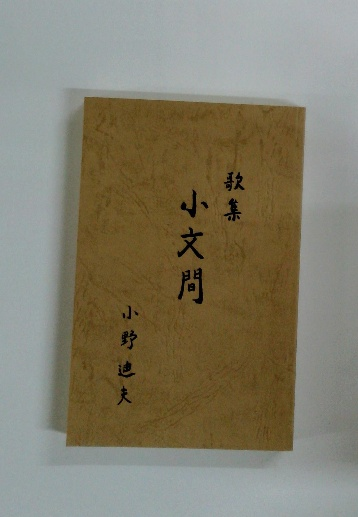 歌集
小文間
小野迪夫